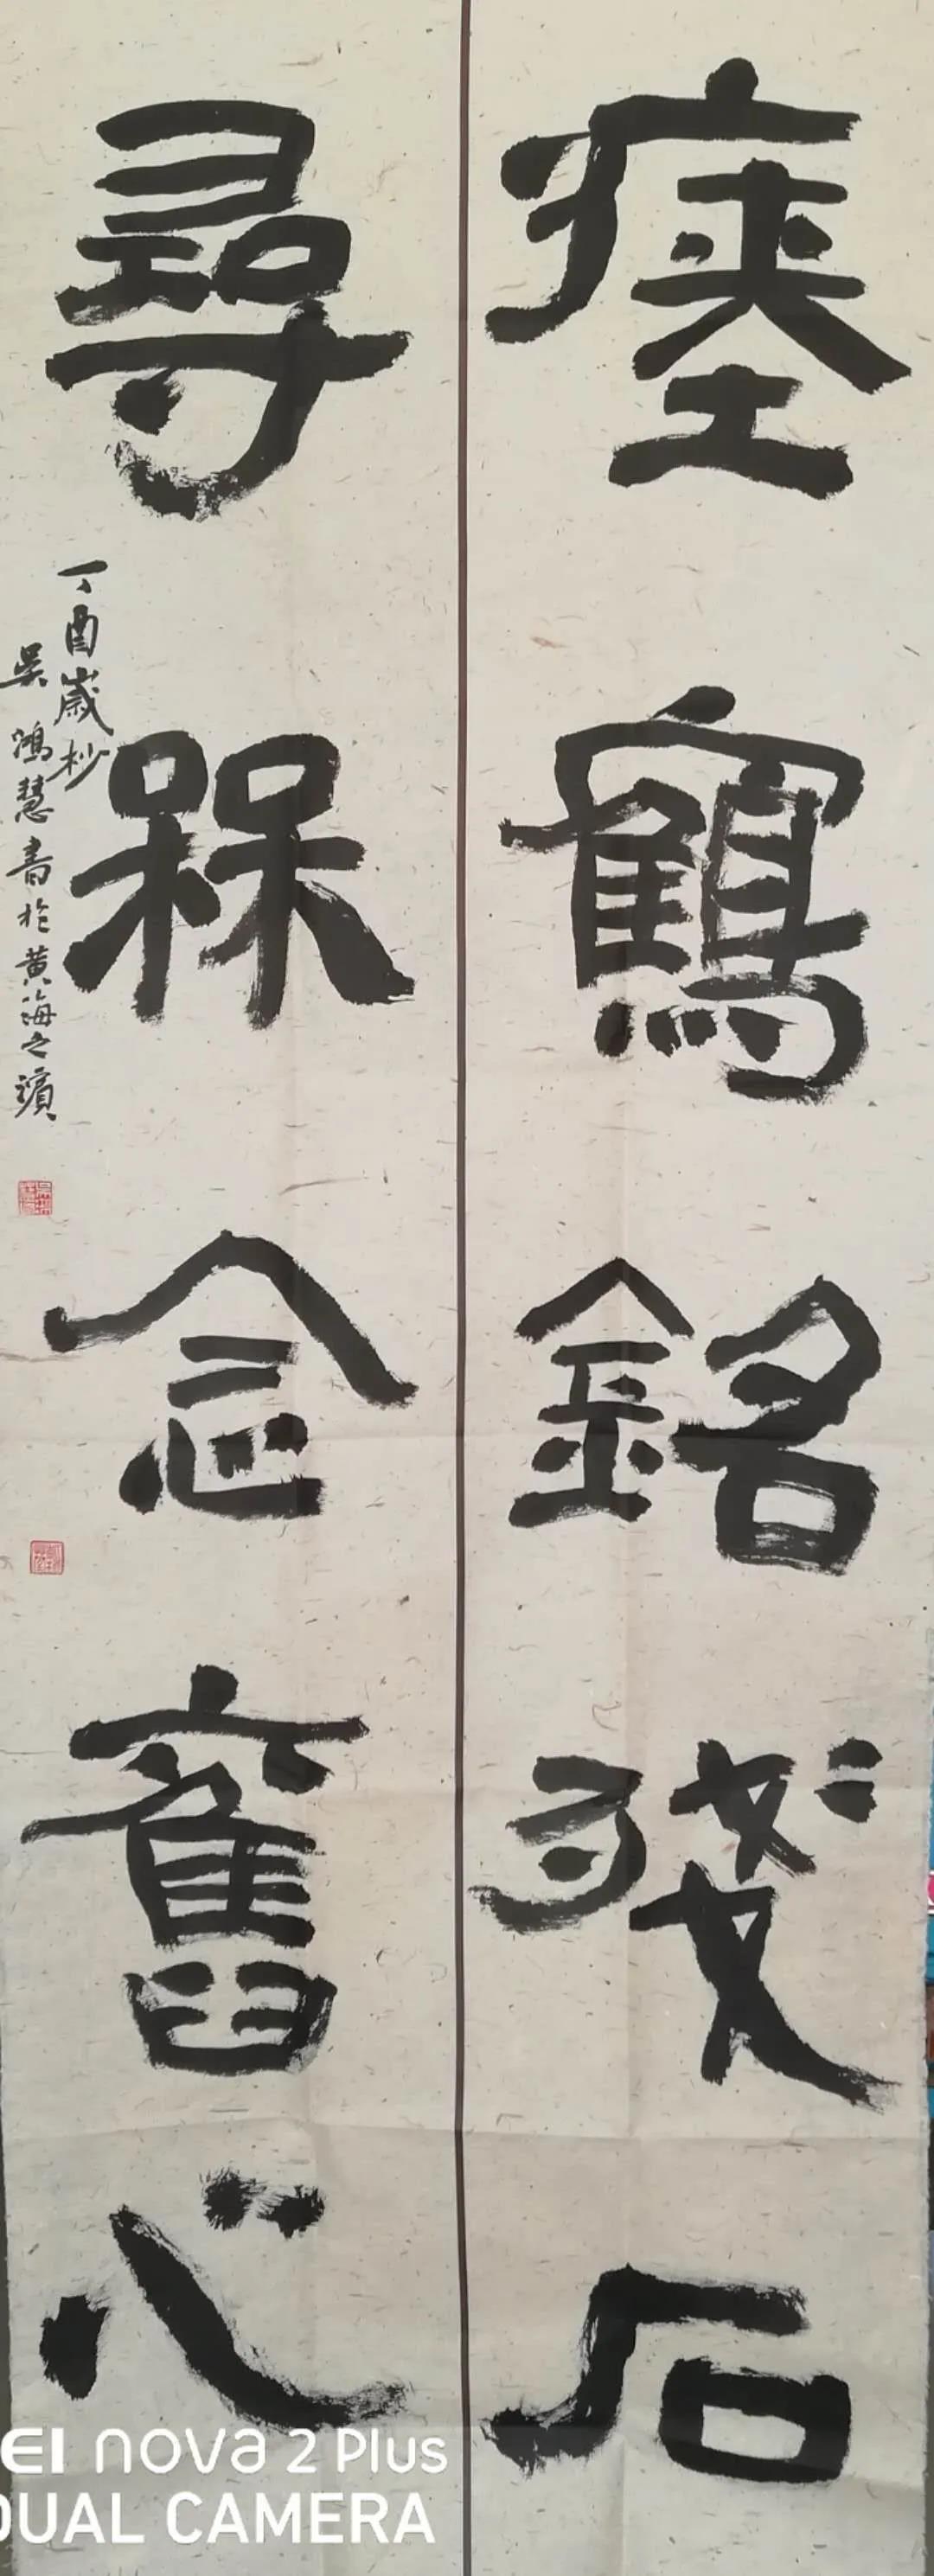 瘞鶴銘殘石
尋槑念舊心
丁酉歲杪
吴鴻慧書於黄海之濱
EI nova 2 Plus
DUAL CAMERA